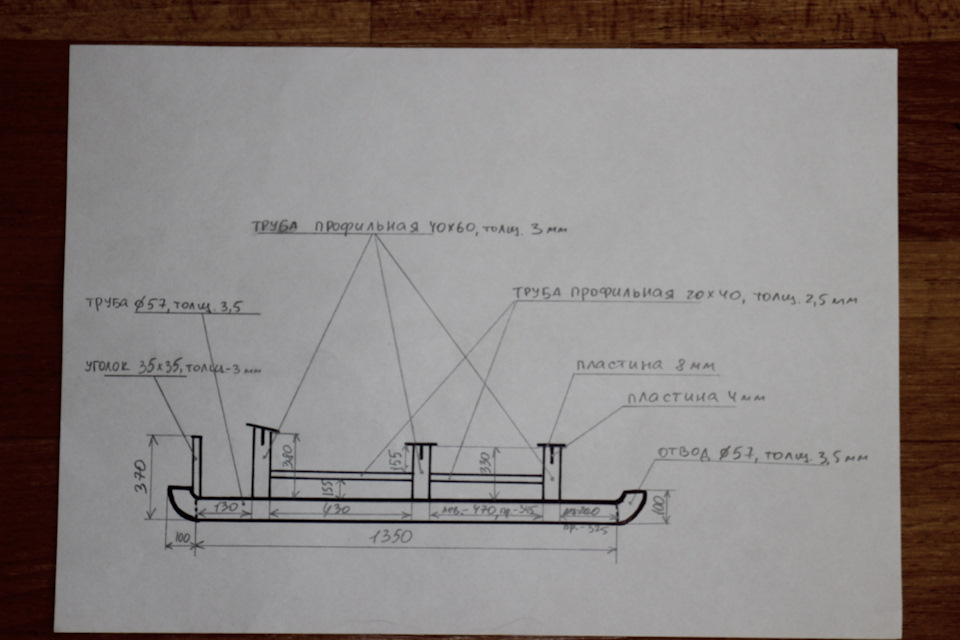 ТРУБА ПРОФИЛЬНАЯ 40х60, толщ. 3 мм
ТРУБА ПРОФИЛЬНАЯ 20х40, толщ. 2,5 мм
ТРУБА ϕ57, толщ. 3,5
УГОЛОК 35х35, толщ-3 мм
ПЛАСТИНА 8 мм
ПЛАСТИНА 4 мм
ОТВОД ϕ57, толщ. 3,5 мм
370
380
155
330
155
100
130
430
лев.-470, пр.-345
пр.-325
100
1350